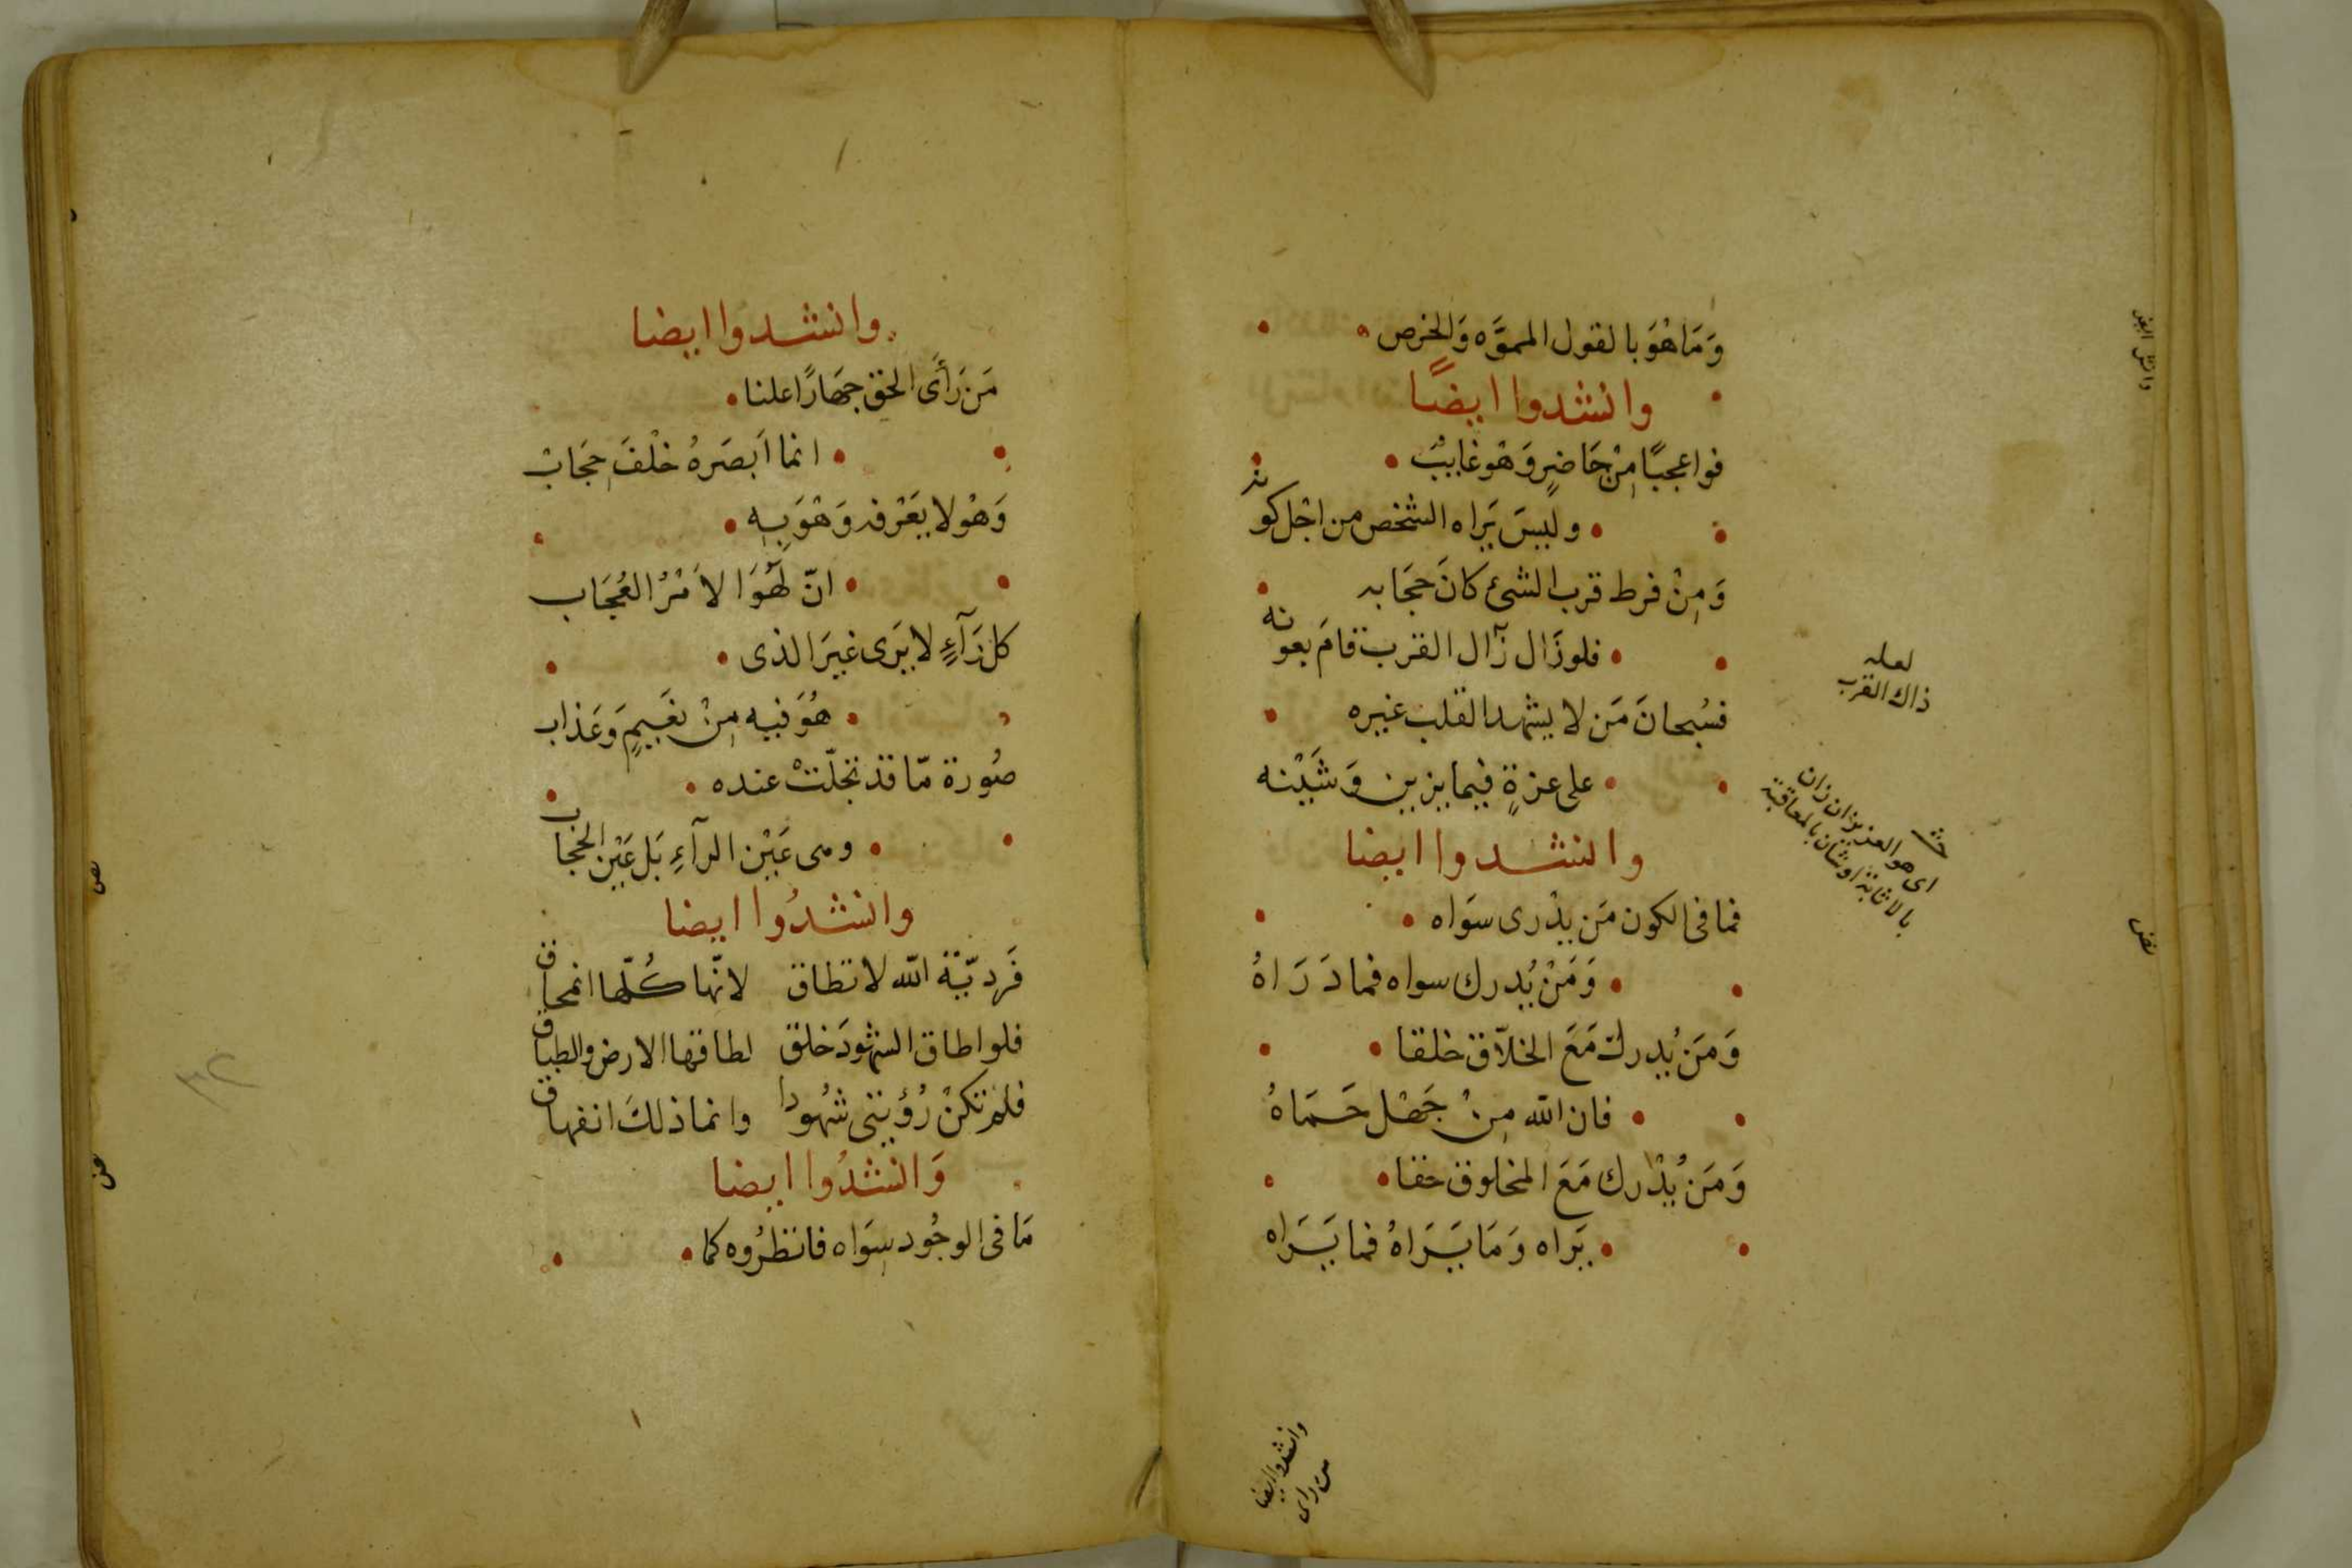 وَمَا هُوَ بالقول المموَّه وَالخرص
وانشدوا ايضًا
فواعجبًا مِنْ حَاضِرٍ وَهْوَ غايبٌ
وليسَ يَراه الشخص من اجْل كونه
وَمِنْ فرط قرب الشئ كانَ حجَابه
فلو زَال زآل القرب قامَ بعونه
فسُبحانَ مَن لا يشهد القلب غيره
على عزةٍ فيما يزين وَشَيْنه
وانشدوا ايضا
فما فى الكون مَن يدْرى سوَاه
وَمَنْ يُدرك سواه فما دَرَاهُ
وَمَن يُدرك مَعَ الخلاّق خلقا
فان الله مِنْ جَهْل حَمَاهُ
وَمَن يُدْرك مَعَ المخلوق حقا
يَراه وَمَا يَرَاهُ فما يَرَاه
لعله
ذاك القرب
اى هو العزيز ان زان
بالاثابة او شان بالمعاقبة
وانشدوا ايضا
من راى
وانشدوا ايضا
مَن رَأَى الحق جهَارًا علنا
انما اَبصَرهُ خلْفَ حِجَابْ
وَهْو لا يعَرْفه وَهْوَ بِهِ
انّ هَٰذَا لَهُوَ الاَمْرُ العُجَاب
كل رَآءٍ لا يَرى غيرَ الذى
هُوَ فيه مِنْ نعَيمٍ وَعَذاب
صُورة مّا قد تجَلّتْ عنده
وهى عَيْن الرآءِ بَل عَيْن الحجاب
وانشدُوا ايضا
فَرديّة الله لا تطاق لانّها كُلّها انمحاق
فلو اطاق الشهودَ خلق لطاقها الارض والطباق
فلم تكنْ رُؤيتى شهُودا وانما ذلكَ انفهاق
وَانشدُوا ايضا
مَا فى الوجُود سِوَاه فانظرُوه كما
٣٢